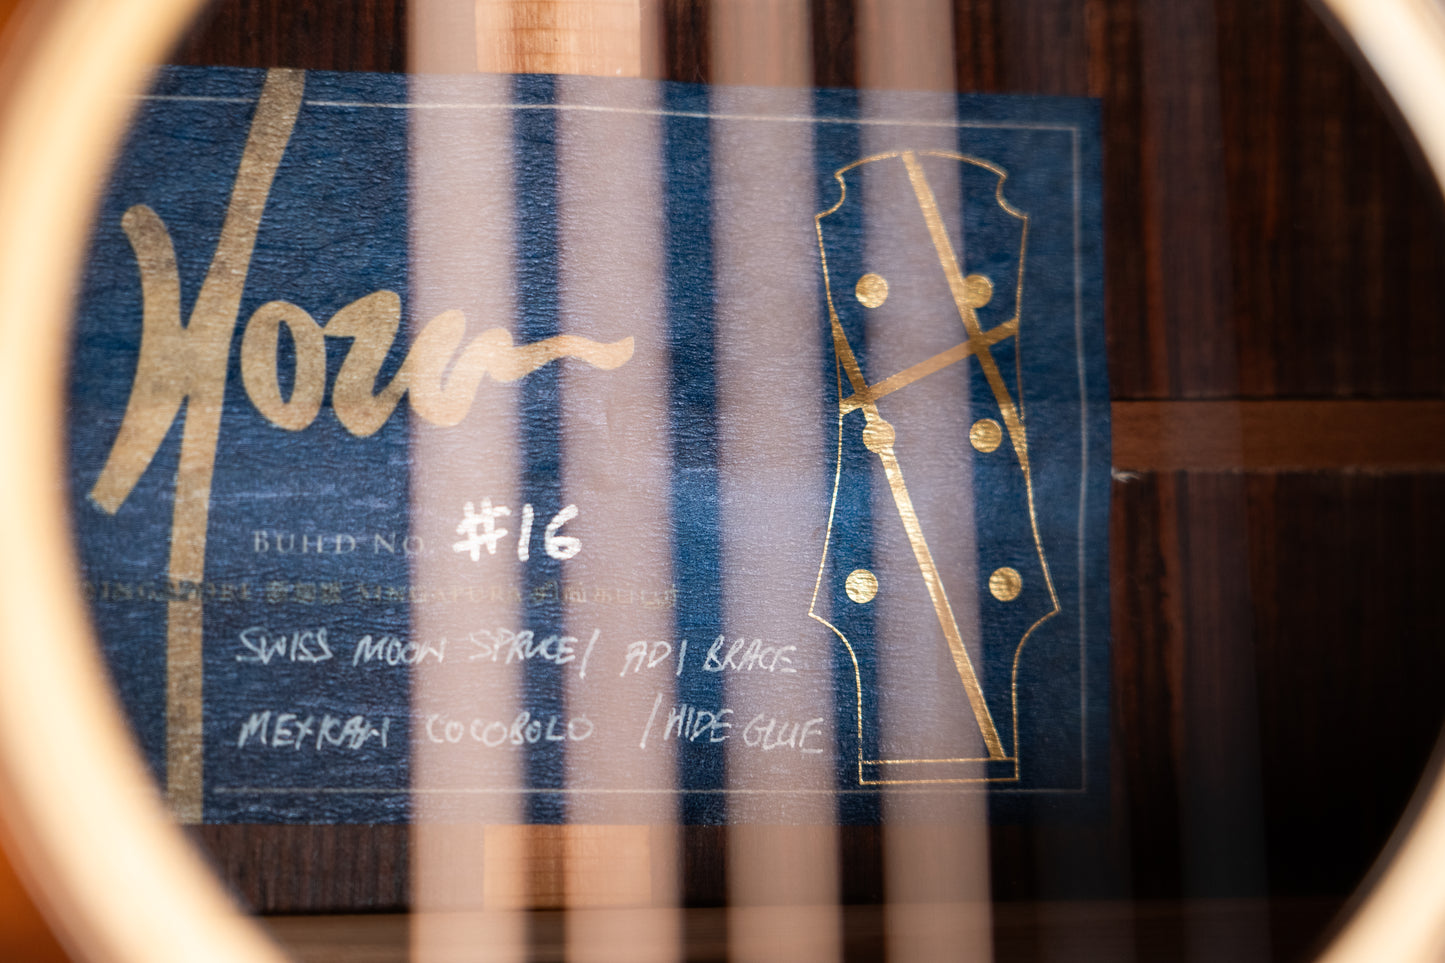 Hozen
BUILD NO. #16
SINGAPORE 新加坡 SINGAPURA
SWISS MOON SPRUCE / ADI BRACE
MEXICAN COCOBOLO / HIDE GLUE